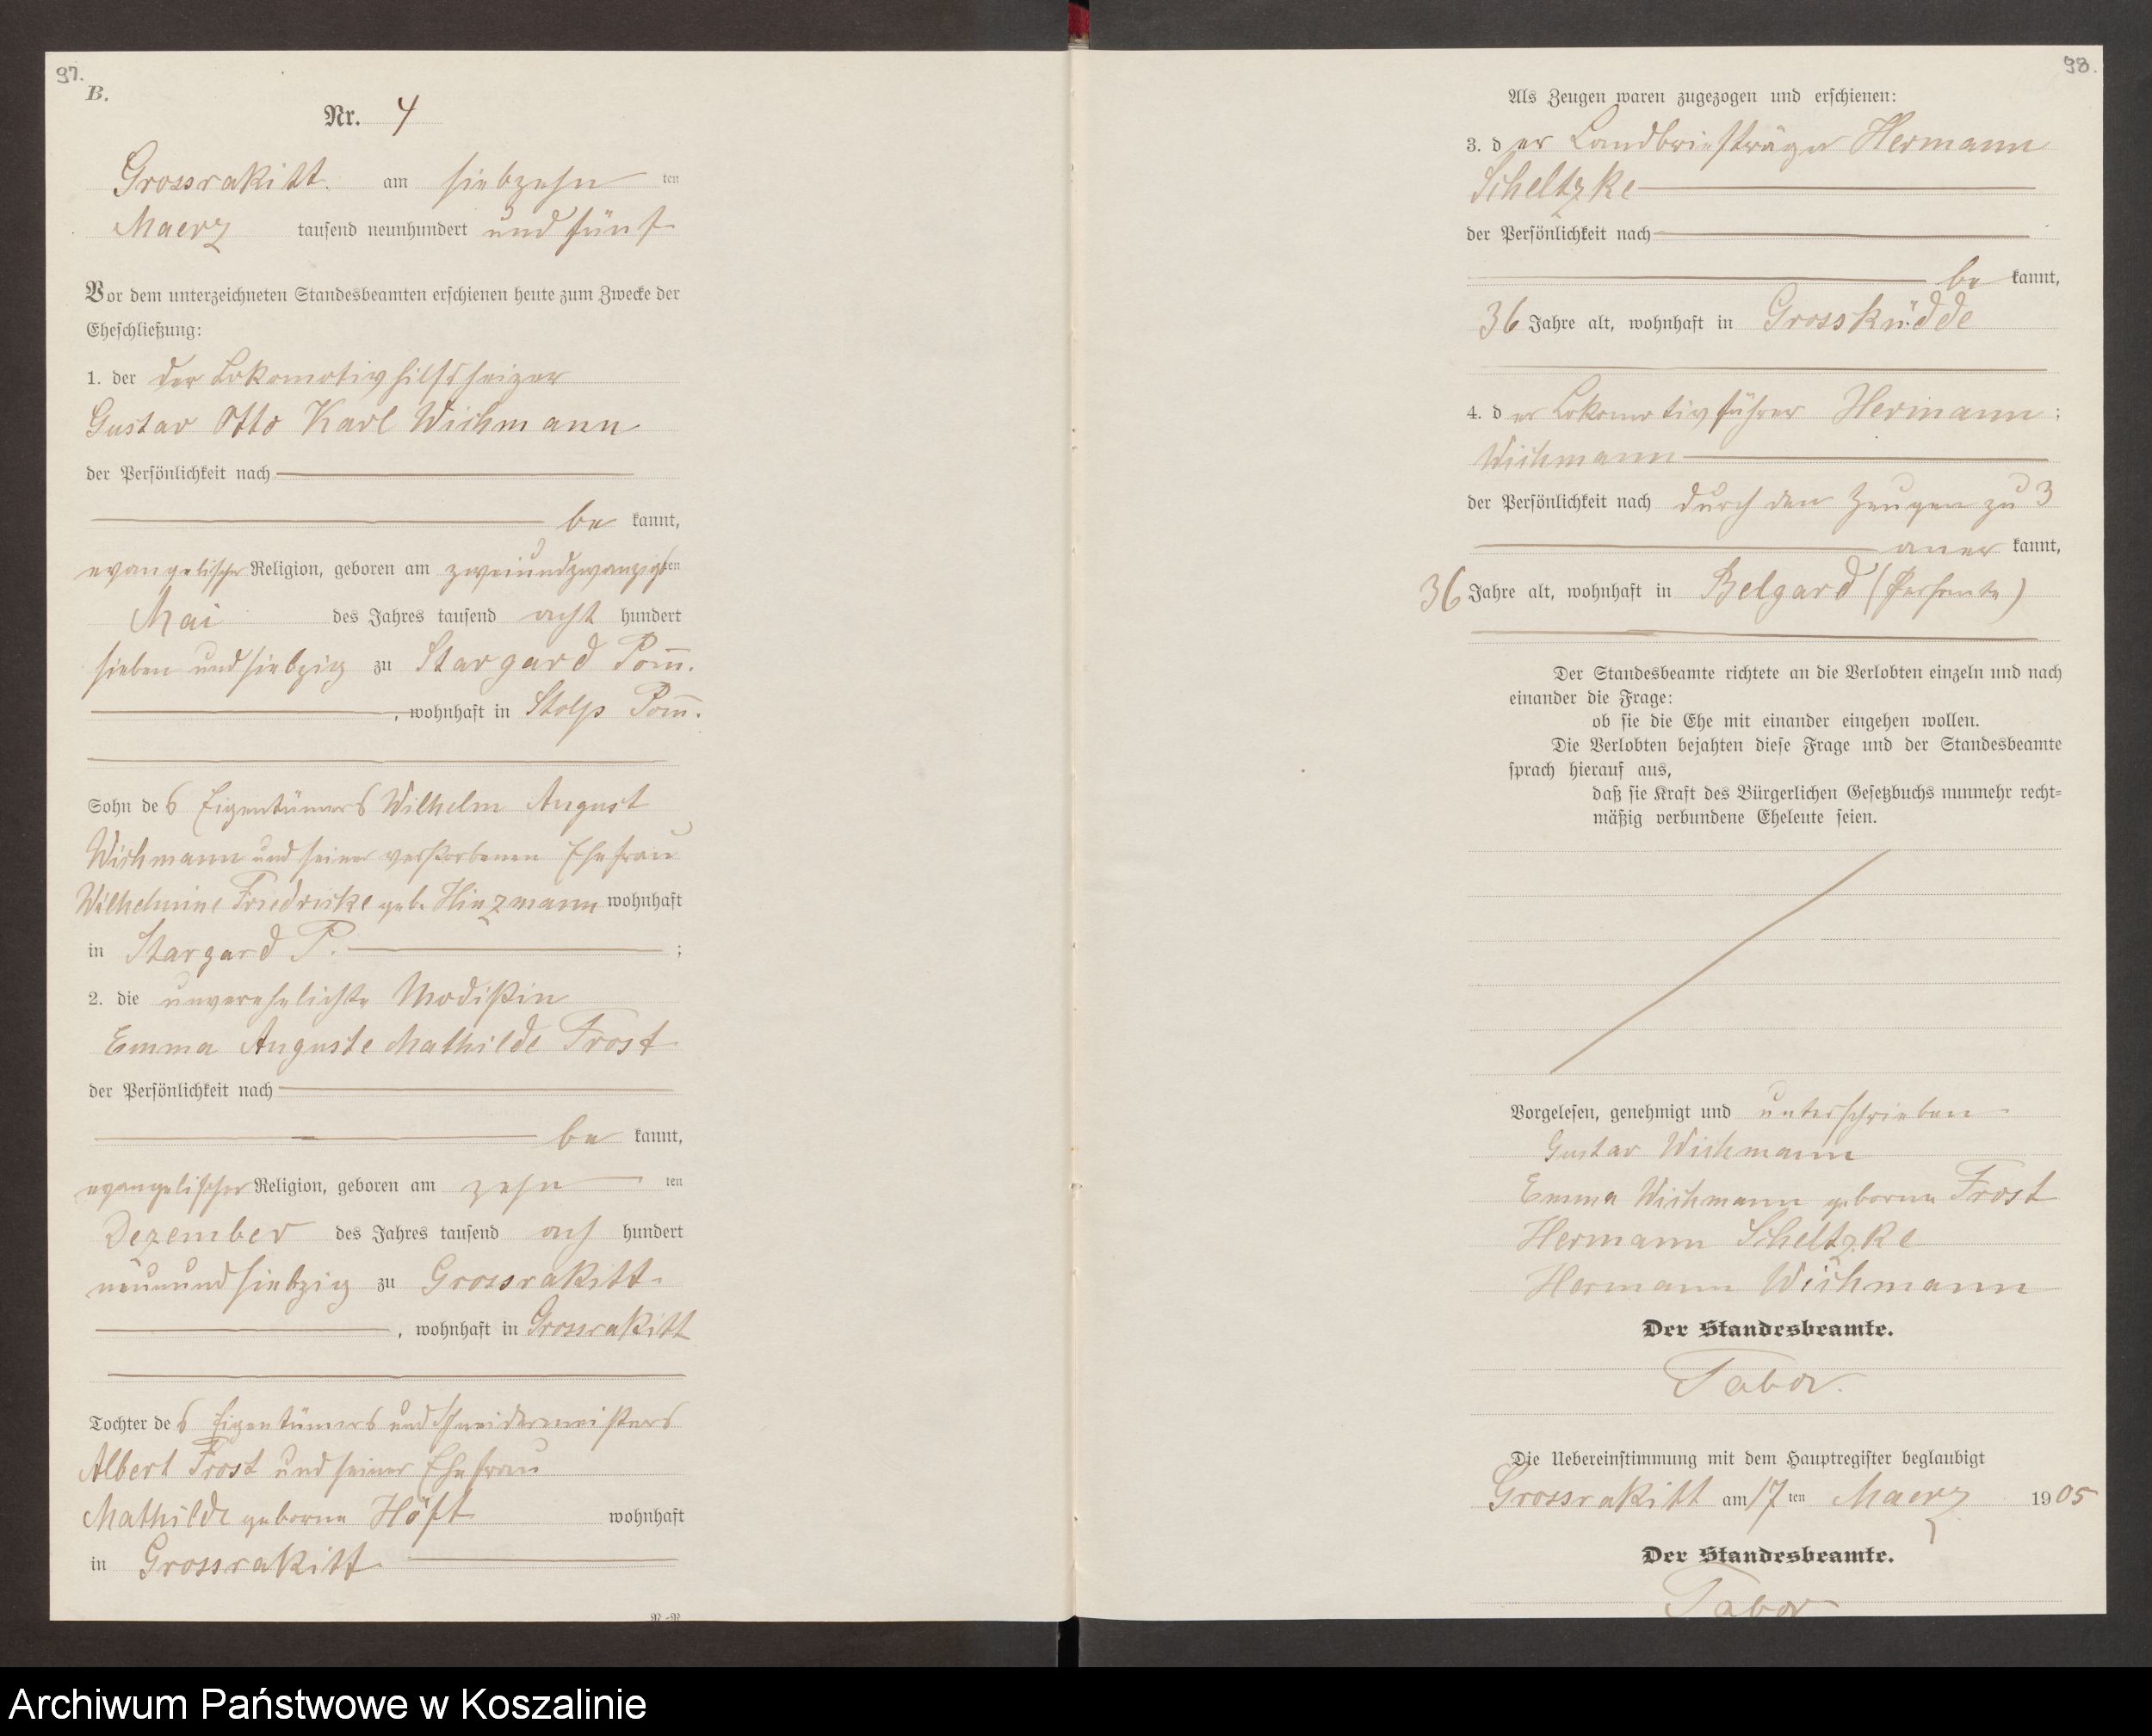 97.
B.
Nr. 4
Grossrakitt. am siebzehn ten
Maerz tausend neunhundert und fünf
Vor dem unterzeichneten Standesbeamten erschienen heute zum Zwecke der
Eheschließung:
1. der der Lokomotivhilfsheizer
Gustav Otto Karl Wichmann
der Persönlichkeit nach
be kannt,
evangelischer Religion, geboren am zweiundzwanzigsten
Mai des Jahres tausend acht hundert
sieben und siebzig zu Stargard Pom̅.
, wohnhaft in Stolp Pom̅.
Sohn des Eigentümers Wilhelm August
Wichmann und seiner verstorbenen Ehefrau
Wilhelmine Friedricke geb. Hinzmann wohnhaft
in Stargard P. ;
2. die unverehelichte Modistin
Emma Auguste Mathilde Frost
der Persönlichkeit nach
be kannt,
evangelischer Religion, geboren am zehn ten
Dezember des Jahres tausend ach hundert
neunundsiebzig zu Grossrakitt.
, wohnhaft in Grossrakitt
Tochter des Eigentümers und Schneidermeisters
Albert Frost und seiner Ehefrau
Mathilde geborne Höft wohnhaft
in Grossrakitt.
98.
Als Zeugen waren zugezogen und erschienen:
3. der Landbriefträger Hermann
Scheltzke
der Persönlichkeit nach
be kannt,
36 Jahre alt, wohnhaft in Grossküdde
4. der Lokomotivführer Hermann ;
Wichmann
der Persönlichkeit nach durch den Zeugen zu 3
aner kannt,
36 Jahre alt, wohnhaft in Belgard (Persante)
Der Standesbeamte richtete an die Verlobten einzeln und nach
einander die Frage:
ob sie die Ehe mit einander eingehen wollen.
Die Verlobten bejahten diese Frage und der Standesbeamte
sprach hierauf aus,
daß sie Kraft des Bürgerlichen Gesetzbuchs nunmehr recht=
mäßig verbundene Eheleute seien.
Vorgelesen, genehmigt und unterschrieben
Gustav Wichmann
Emma Wichmann geborne Frost
Hermann Scheltzke
Hermann Wichmann
Der Standesbeamte.
Tabor.
Die Uebereinstimmung mit dem Hauptregister beglaubigt
Grossrakitt am 17 ten Maerz 1905
Der Standesbeamte.
Tabor
Archiwum Państwowe w Koszalinie